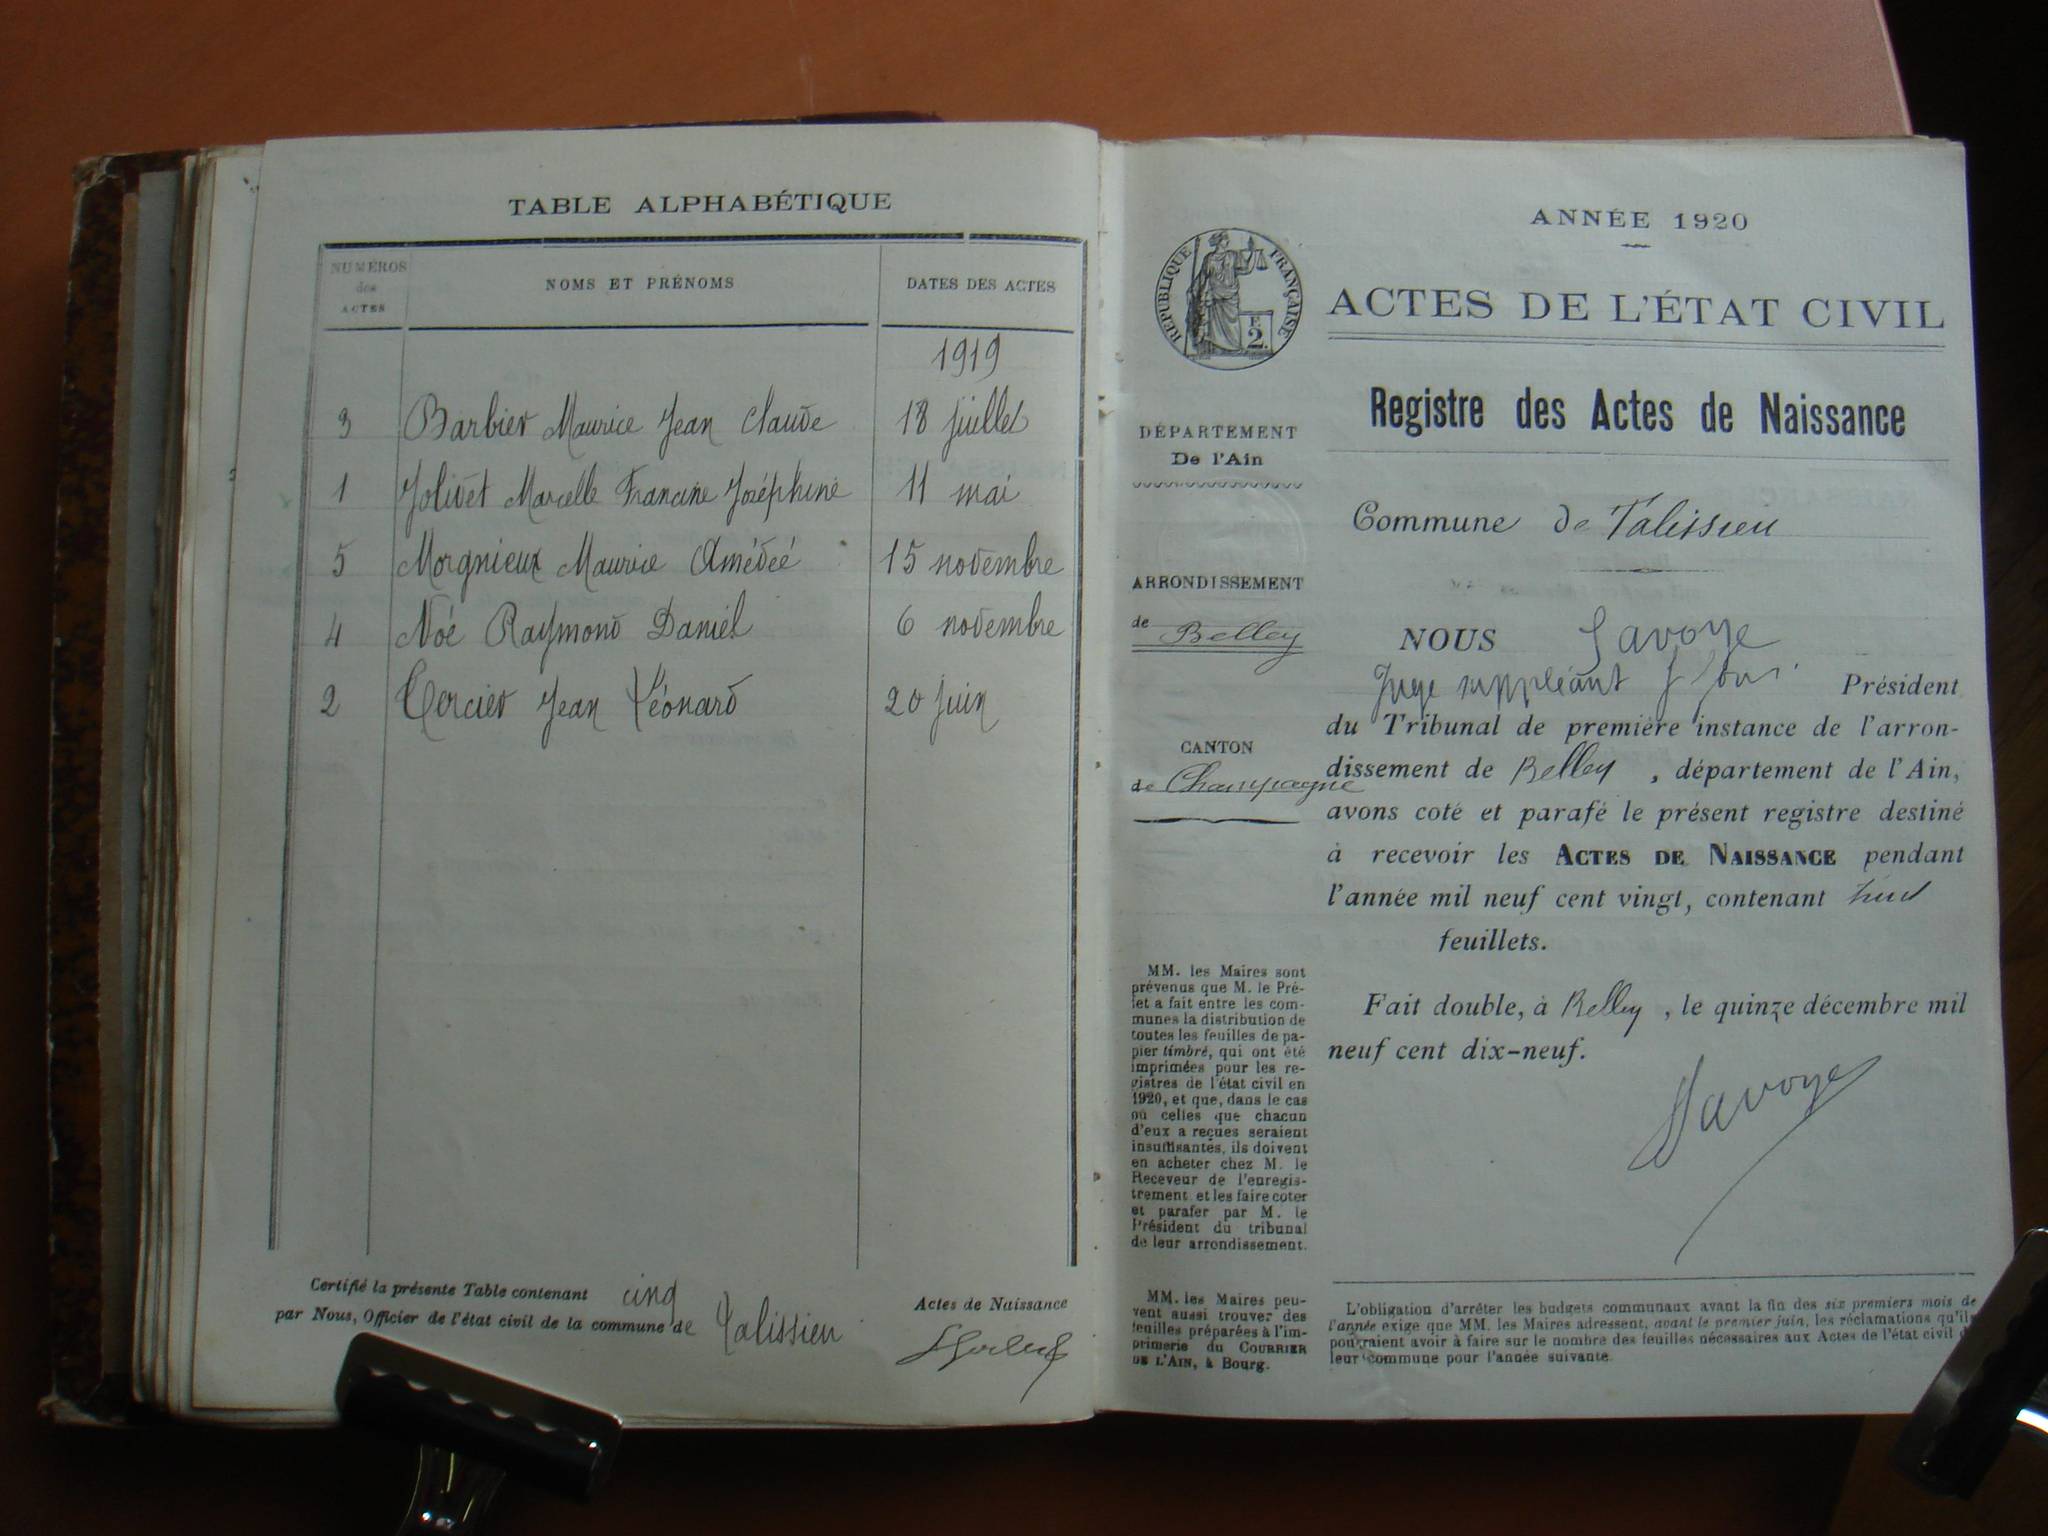 TABLE ALPHABÉTIQUE
NUMÉROS
des
ACTES
NOMS ET PRÉNOMS
DATES DES ACTES
1919
3 Barbier Maurice Jean Claude 18 juillet
1 Jolivet Marcelle Francine Joséphine 11 mai
5 Morgnieux Maurice Amédée 15 novembre
4 Noé Raymond Daniel 6 novembre
2 Tercier Jean Léonard 20 juin
Certifié la présente Table contenant cinq Actes de Naissance
par Nous, Officier de l'état civil de la commune de Talissieu
ANNÉE 1920
RÉPUBLIQUE FRANÇAISE
F.
2.
ACTES DE L'ÉTAT CIVIL
Registre des Actes de Naissance
DÉPARTEMENT
De l'Ain
Commune de Talissieu
ARRONDISSEMENT
de Belley
CANTON
de Champagne
NOUS Savoye
Juge suppléant Président
du Tribunal de première instance de l'arron-
dissement de Belley, département de l'Ain,
avons coté et parafé le présent registre destiné
à recevoir les ACTES DE NAISSANCE pendant
l'année mil neuf cent vingt, contenant huit
feuillets.
Fait double, à Belley, le quinze décembre mil
neuf cent dix-neuf.
Savoye
MM. les Maires sont
prévenus que M. le Pré-
fet a fait entre les com-
munes la distribution de
toutes les feuilles de pa-
pier timbré, qui ont été
imprimées pour les re-
gistres de l'état civil en
1920, et que, dans le cas
où celles que chacun
d'eux a reçues seraient
insuffisantes, ils doivent
en acheter chez M. le
Receveur de l'enregis-
trement et les faire coter
et parafer par M. le
Président du tribunal
de leur arrondissement.
MM. les Maires peu-
vent aussi trouver des
feuilles préparées à l'im-
primerie du COURRIER
DE L'AIN, à Bourg.
L'obligation d'arrêter les budgets communaux avant la fin des six premiers mois de
l'année exige que MM. les Maires adressent, avant le premier juin, les réclamations qu'ils
pourraient avoir à faire sur le nombre des feuilles nécessaires aux Actes de l'état civil de
leur commune pour l'année suivante.